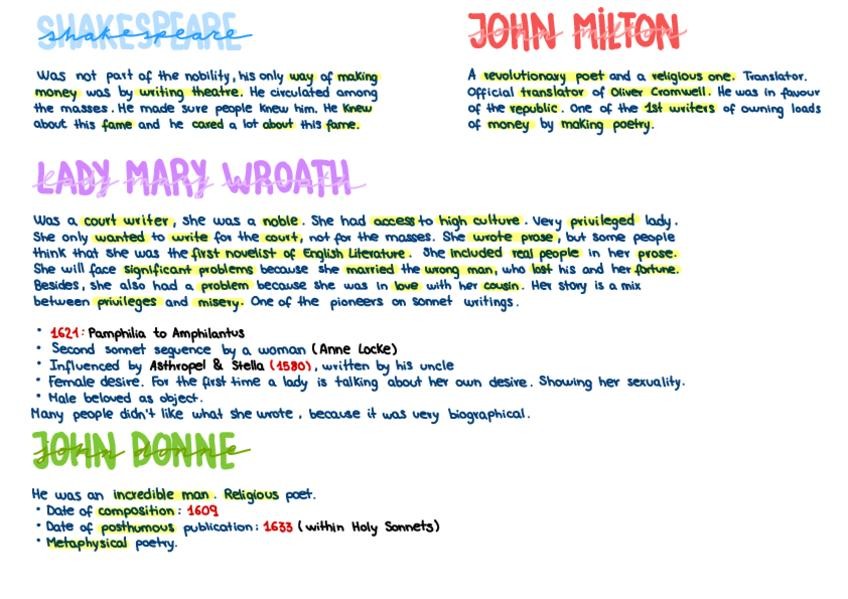 SHAKESPEARE
shakespeare
Was not part of the nobility, his only way of making
money was by writing theatre. He circulated among
the masses. He made sure people knew him. He Knew
about this fame and he cared a lot about this fame.
JOHN MILTON
john milton
A revolutionary poet and a religious one. Translator.
Official translator of Oliver Cromwell. He was in favour
of the republic. One of the 1st writers of owning loads
of money by making poetry.
LADY MARY WROATH
lady mary wroath
Was a court writer, she was a noble. She had access to high culture. Very privileged lady.
She only wanted to write for the court, not for the masses. She wrote prose, but some people
think that she was the first novelist of English Literature. She included real people in her prose.
She will face significant problems because she married the wrong man, who lost his and her fortune.
Besides, she also had a problem because she was in love with her cousin. Her story is a mix
between privileges and misery. One of the pioneers on sonnet writings.
• 1621: Pamphilia to Amphilantus
• Second sonnet sequence by a woman (Anne Locke)
• Influenced by Asthropel & Stella (1580), written by his uncle
• Female desire. For the first time a lady is talking about her own desire. Showing her sexuality.
• Male beloved as object.
Many people didn't like what she wrote, because it was very biographical.
JOHN DONNE
john donne
He was an incredible man. Religious poet.
• Date of composition: 1609
• Date of posthumous publication: 1633 (within Holy Sonnets)
• Metaphysical poetry.